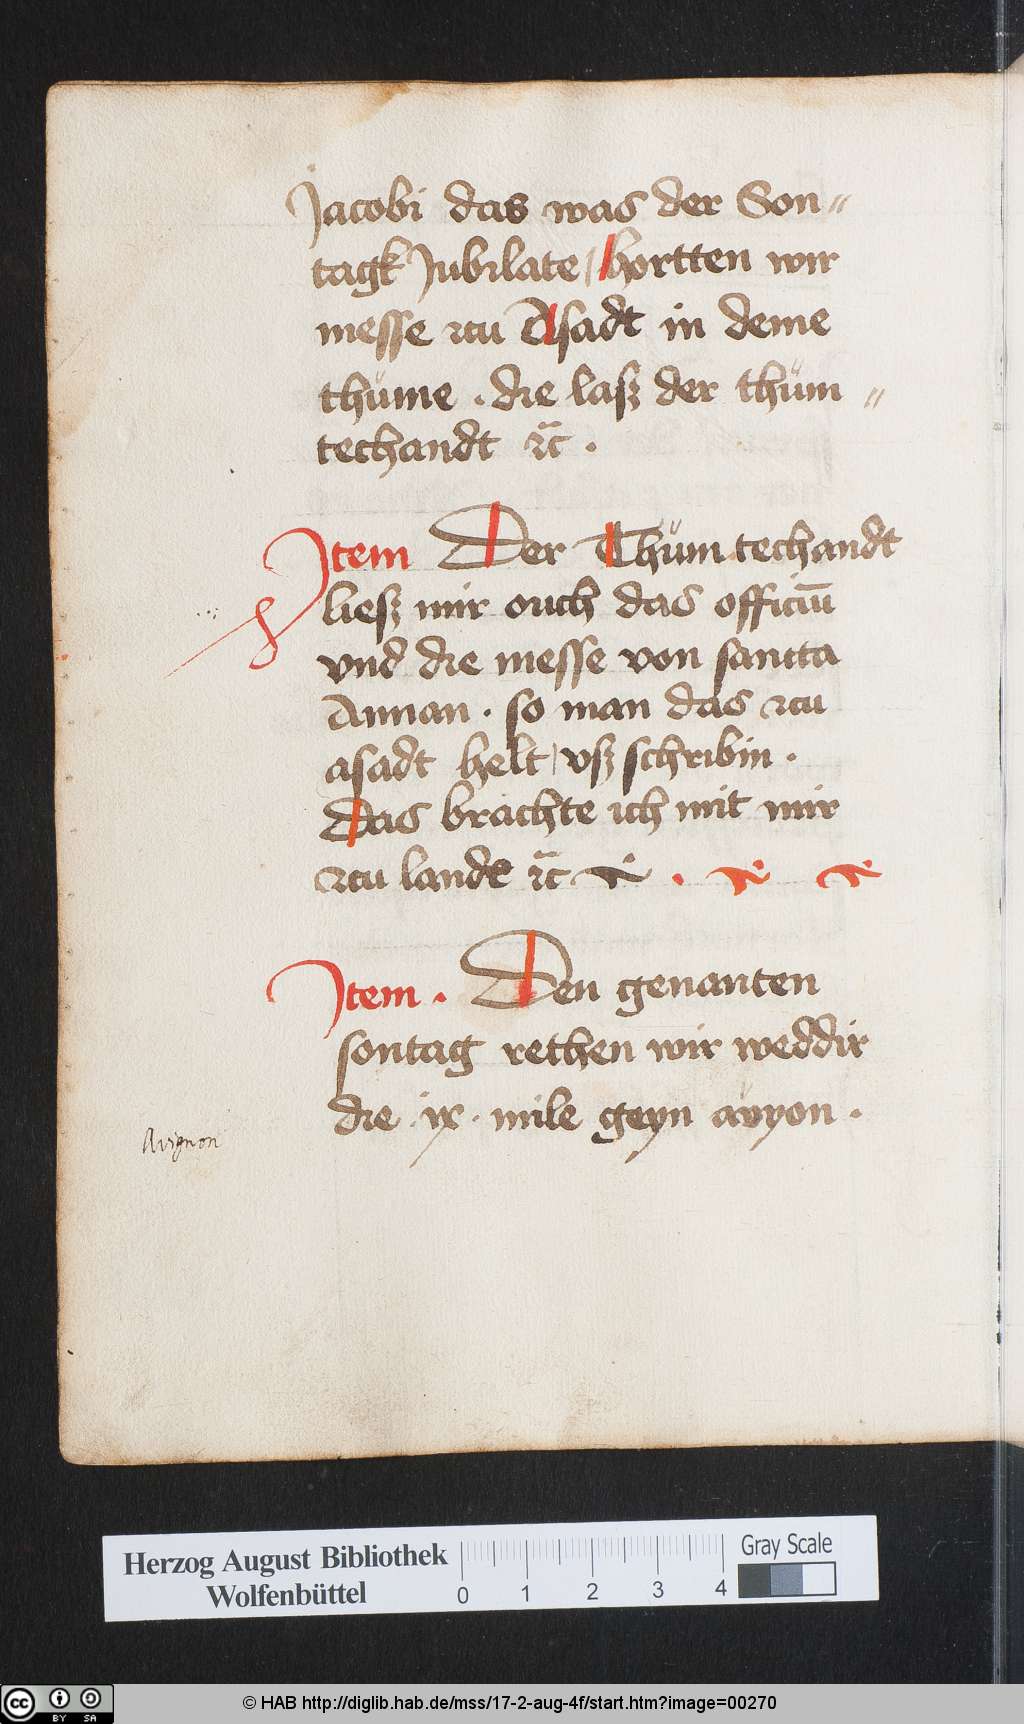 Jacobi das was der Son„
tagk Jubilate / hortten wir
messe zcu Asadt in deme
thüme . die lasz der thüm„
techandt ꝛc̄ .
Item Der Thüm techandt
liesz mir ouch das officiū
vnd die messe von sancta
Annan . so man das zcu
asadt helt / vsz schribin .
Das brachte ich mit mir
zcu lande ꝛc̄
Item . Den genanten
sontag rethen wir weddir
die . ix . mile geyn avyon .
Avignon
Herzog August Bibliothek
Wolfenbüttel
0 1 2 3 4
Gray Scale
cc BY SA
© HAB http://diglib.hab.de/mss/17-2-aug-4f/start.htm?image=00270